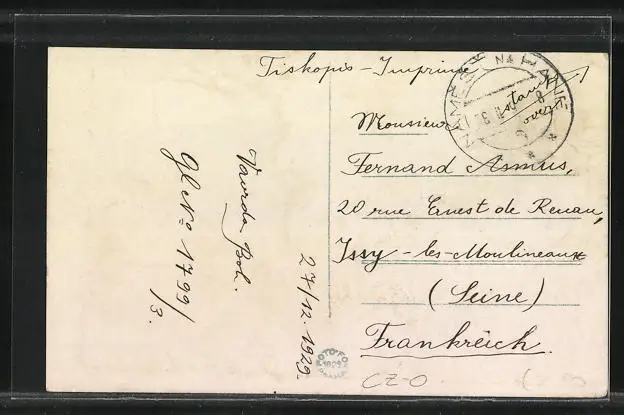 Tiskopis - Imprimé
NÁMĚŠŤ NA HANÉ
Monsieur
Fernand Asmus,
20 rue Ernest de Renan,
Issy - les - Moulineaux
(Seine)
Frankreich.
CZ-O
Vavrda Boh.
Gl No 1799/
3.
27/12. 1929